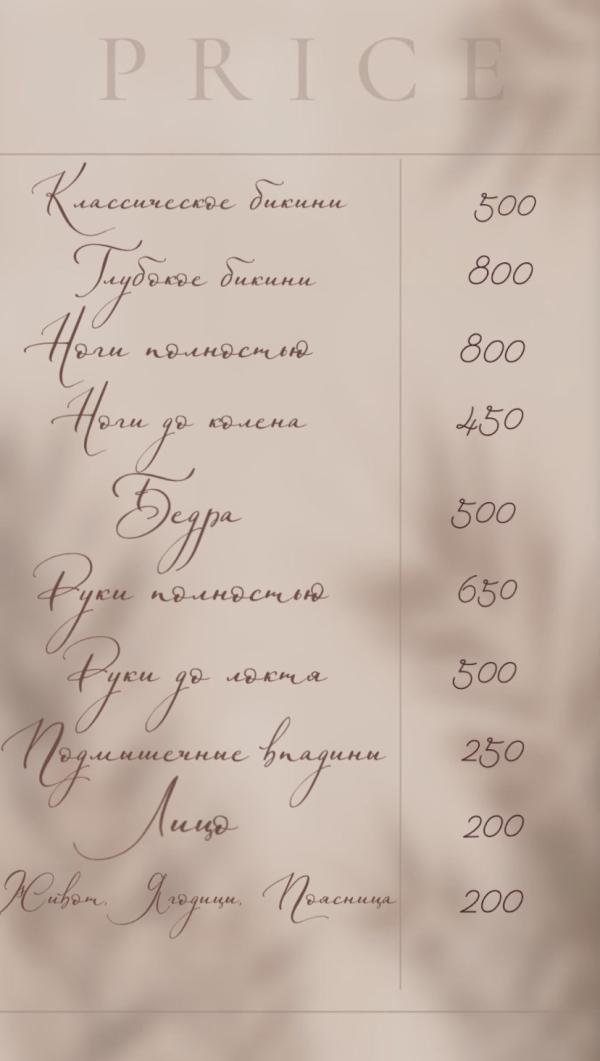 PRICE
Классическое бикини 500
Глубокое бикини 800
Ноги полностью 800
Ноги до колена 450
Бедра 500
Руки полностью 650
Руки до локтя 500
Подмышечные впадины 250
Лицо 200
Живот, Ягодицы, Поясница 200